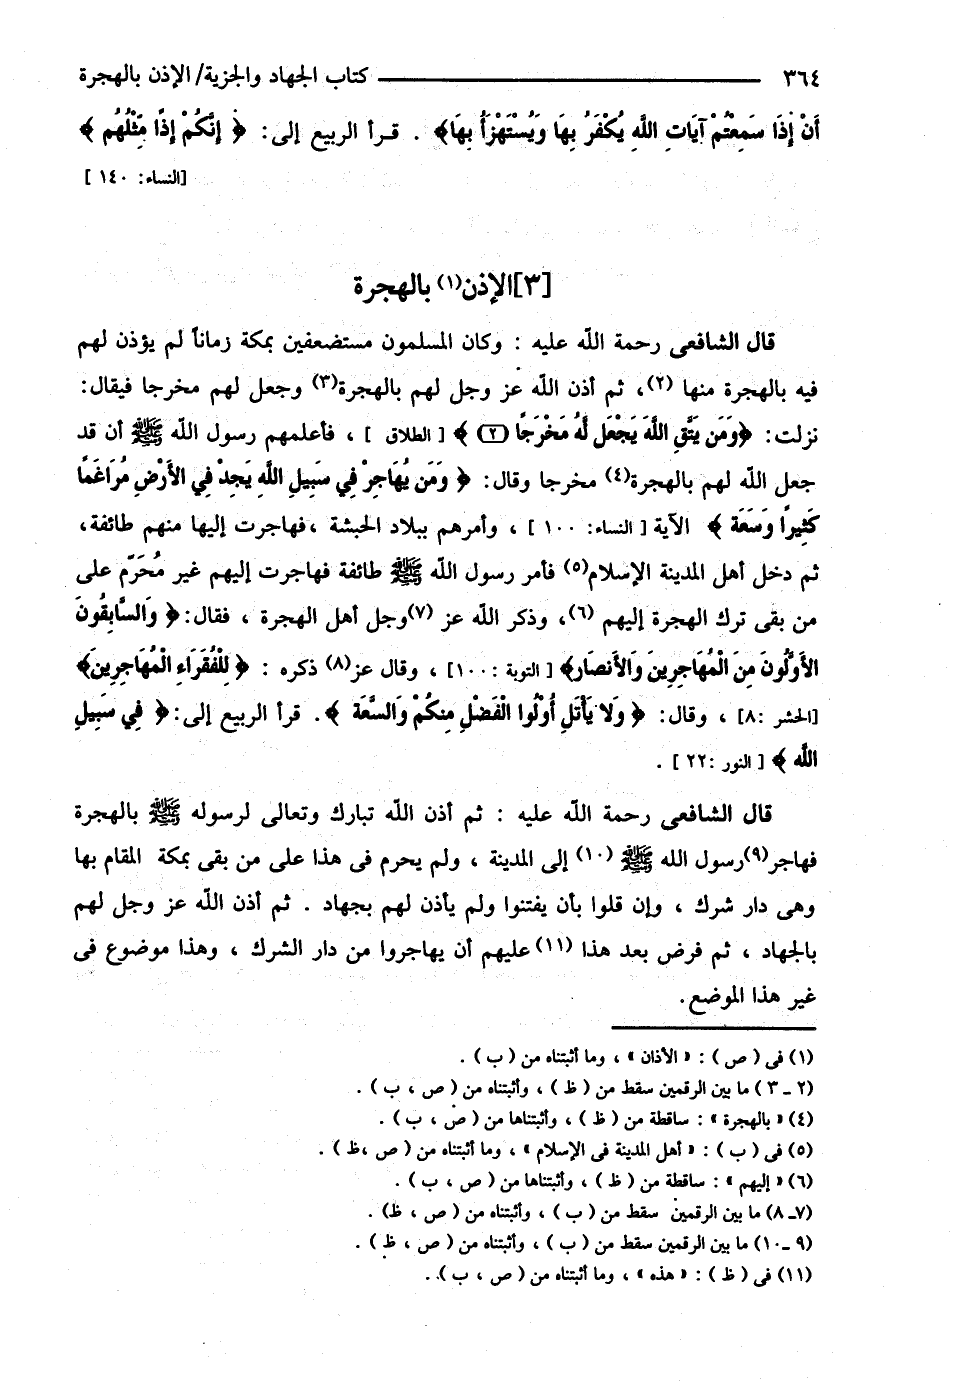 ٣٦٤ ــــــــــــ كتاب الجهاد والجزية/ الإذن بالهجرة
أَنْ إِذَا سَمِعْتُمْ آيَاتِ اللَّهِ يُكْفَرُ بِهَا وَيُسْتَهْزَأُ بِهَا﴾ . قـرأ الربيع إلى: ﴿ إِنَّكُمْ إِذًا مِّثْلُهُم ﴾
[النساء: ١٤٠ ]
[٣]الإذن(١) بالهجرة
قال الشافعى رحمة اللّه عليه : وكان المسلمون مستضعفين بمكة زماناً لم يؤذن لهم
فيه بالهجرة منها (٢)، ثم أذن اللّه عز وجل لهم بالهجرة(٣) وجعل لهم مخرجا فيقال:
نزلت: ﴿وَمَن يَتَّقِ اللَّهَ يَجْعَل لَّهُ مَخْرَجًا (٢) ﴾ [ الطلاق ] ، فأعلمهم رسول اللّه ﷺ أن قد
جعل اللّه لهم بالهجرة(٤) مخرجا وقال: ﴿ وَمَن يُهَاجِرْ فِي سَبِيلِ اللَّهِ يَجِدْ فِي الأَرْضِ مُرَاغَمًا
كَثِيرًا وَسَعَةً ﴾ الآية [ النساء: ١٠٠ ] ، وأمرهم ببلاد الحبشة ،فهاجرت إليها منهم طائفة،
ثم دخل أهل المدينة الإسلام(٥) فأمر رسول اللّه ﷺ طائفة فهاجرت إليهم غير مُحَرّم على
من بقى ترك الهجرة إليهم (٦)، وذكر اللّه عز (٧)وجل أهل الهجرة ، فقال:﴿ وَالسَّابِقُونَ
الأَوَّلُونَ مِنَ الْمُهَاجِرِينَ وَالأَنصَارِ﴾ [ التوبة :١٠٠] ، وقال عز(٨) ذكره : ﴿ لِلْفُقَرَاءِ الْمُهَاجِرِينَ﴾
[الحشر :٨] ، وقال: ﴿ وَلا يَأْتَلِ أُوْلُوا الْفَضْلِ مِنكُمْ وَالسَّعَةِ ﴾. قرأ الربيع إلى:﴿ فِي سَبِيلِ
اللَّه ﴾ [ النور :٢٢ ] .
قال الشافعى رحمة اللّه عليه : ثم أذن اللّه تبارك وتعالى لرسوله ﷺ بالهجرة
فهاجر(٩)رسول الله ﷺ (١٠) إلى المدينة ، ولم يحرم فى هذا على من بقى بمكة المقام بها
وهى دار شرك ، وإن قلوا بأن يفتنوا ولم يأذن لهم بجهاد . ثم أذن اللّه عز وجل لهم
بالجهاد ، ثم فرض بعد هذا (١١) عليهم أن يهاجروا من دار الشرك ، وهذا موضوع فى
غير هذا الموضع.
(١) فى ( ص ) : « الأذان » ، وما أثبتناه من ( ب ) .
(٢ ـ ٣ ) ما بين الرقمين سقط من ( ظ ) ، وأثبتناه من ( ص ، ب ) .
(٤) « بالهجرة » : ساقطة من ( ظ ) ، وأثبتناها من ( ص ، ب ) .
(٥) فى ( ب ) : « أهل المدينة فى الإسلام » ، وما أثبتناه من ( ص ،ظ ) .
(٦) « إليهم » : ساقطة من ( ظ ) ، وأثبتناها من ( ص ، ب ) .
(٧ـ ٨) ما بين الرقمين سقط من ( ب ) ، وأثبتناه من ( ص ، ظ) .
(٩ ـ١٠) ما بين الرقمين سقط من ( ب ) ، وأثبتناه من ( ص ، ظ ) .
(١١) فى ( ظ ) : « هذه » ، وما أثبتناه من ( ص ، ب )..